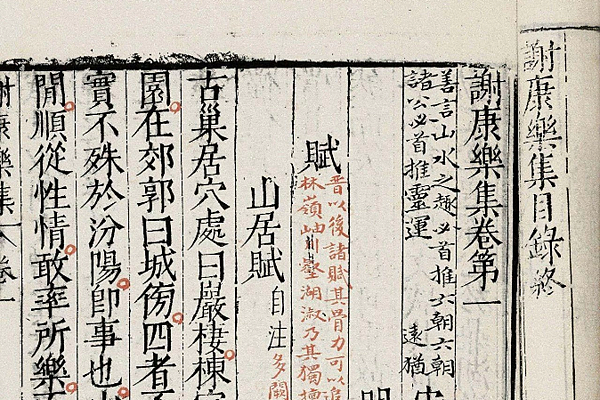 謝康樂集目錄終
謝康樂集卷第一
善言山水之趣必首推六朝六朝
諸公必首推靈運 遠猶
賦
晉以後諸賦其骨力可以追
林嶺岫川壑湖溆乃其獨擅
山居賦 自注多闕
古巢居穴處曰巖棲棟
園在郊郭曰城傍四者不
實不殊於汾陽卽事也
閒順從性情敢率所樂
謝康樂集 卷一